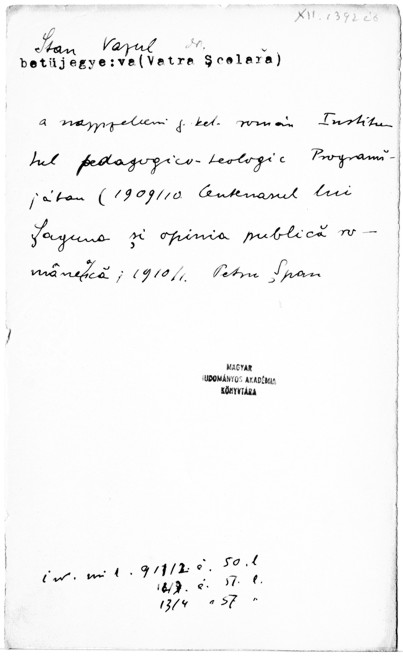 XII. 1392
Stan Vasul dr.
betüjegye:va(Vatra Şcolară)
a nagyszebeni g. kel. román Institu
tul pedagogico-teologic Programm-
jában (1909/10. Centenarul lui
Şaguna şi opinia publică ro-
mânească; 1910/1. Petru Şpan
MAGYAR
TUDOMÁNYOS AKADÉMIA
KÖNYVTÁRA
50. l
57. l.
13/4 " 57 "